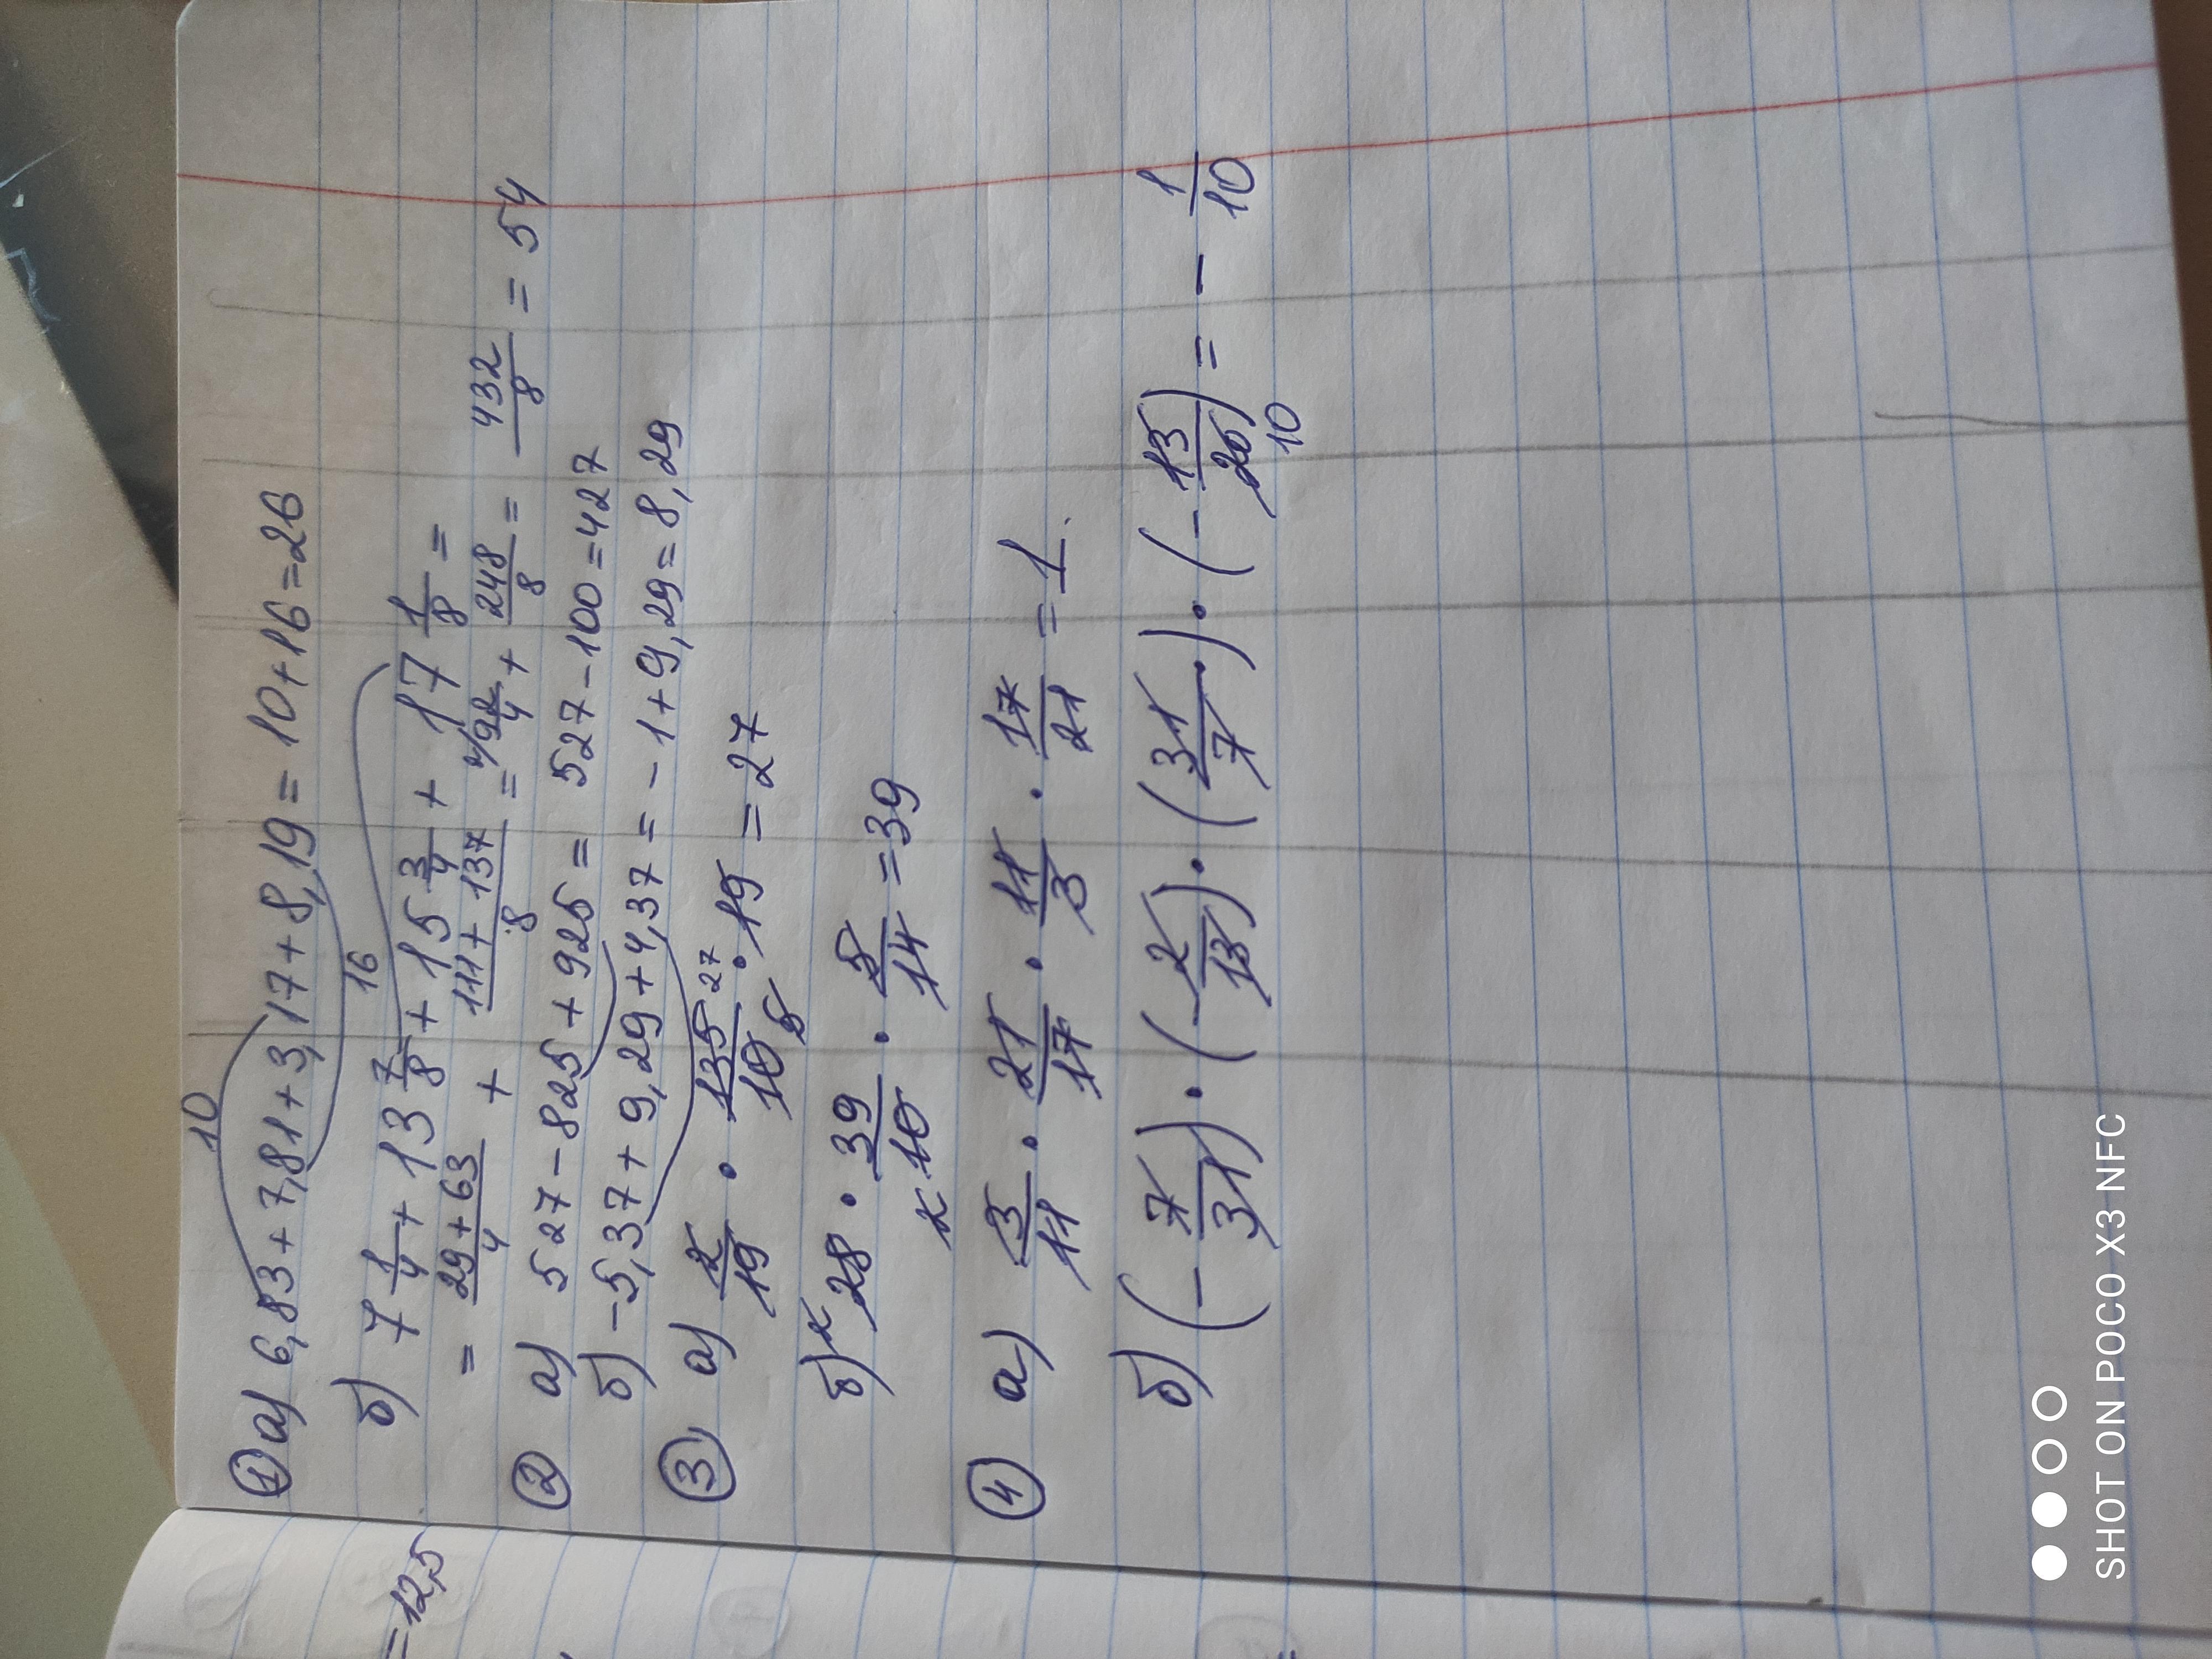 = 12,5
① а) 6,83 + 7,81 + 3,17 + 8,19 = 10 + 16 = 26
10
16
б) 7 1/4 + 13 7/8 + 15 3/4 + 17 1/8 =
= (29 + 63)/4 + (111 + 137)/8 = 2/ 92/4 + 248/8 = 432/8 = 54
② а) 527 - 825 + 925 = 527 - 100 = 427
б) -5,37 + 9,29 + 4,37 = -1 + 9,29 = 8,29
③ а) 2/19 · 135/10 · 19 = 27
27
5
б) 28 · 39/10 · 5/14 = 39
2
2
④ а) 3/11 · 21/17 · 11/3 · 17/21 = 1.
б) (- 7/31) · (- 2/13) · (31/7) · (- 13/20) = - 1/10
10
SHOT ON POCO X3 NFC